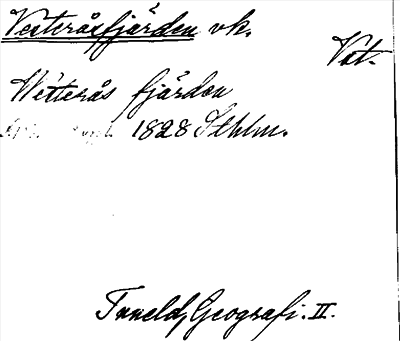 Vesteråsfjärden vk.
Vst.
Westerås fjärden
1828 Sthlm.
Tuneld, Geografi. II.